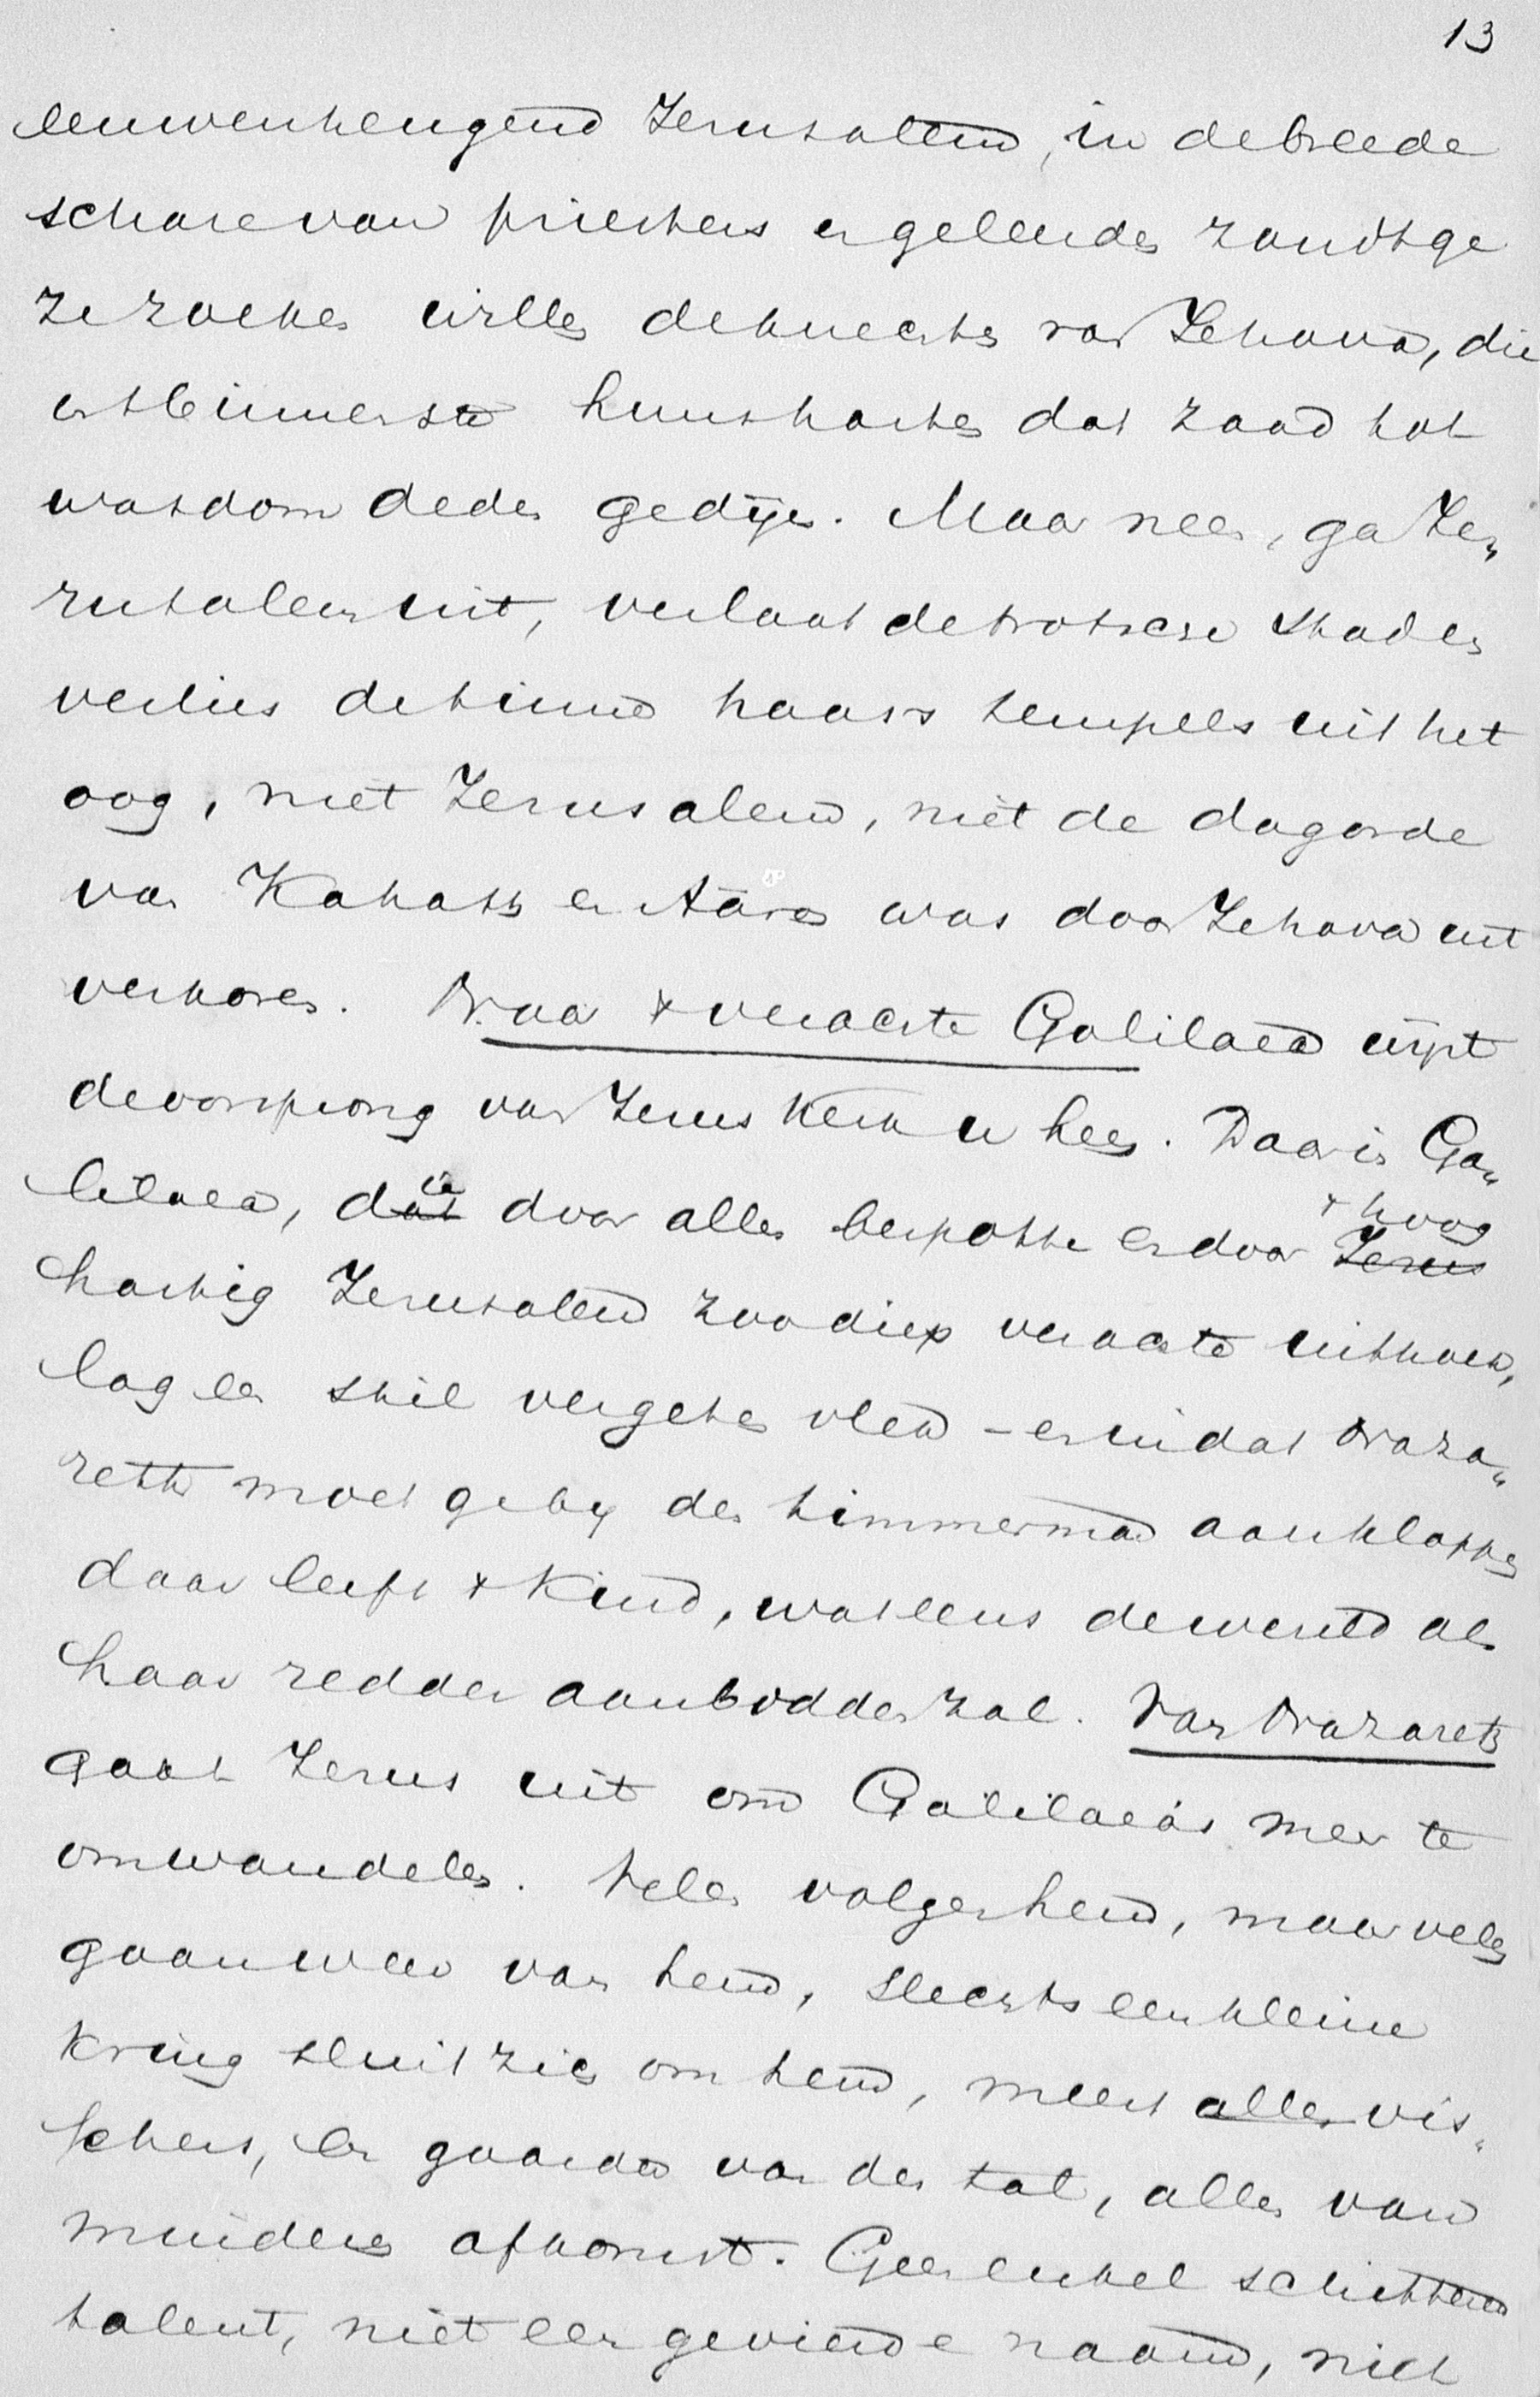 13
eeuwenheugend Jerusalem, in de breede
schare van priesters en geleerden zoudt ge
ze zoeken willen de knechten van Jehova, die
in 't binnenste huns harten dat zaad tot
wasdom deden gedijen. Maar neen, ga Je„
rusalem uit, verlaat de trotsche stad en
verlies de tinne haars tempels uit het
oog, niet Jerusalem, niet de dagorde
van Kahath en Aäron was door Jehova uit
verkoren. Naar 't verachte Galilaea wijst
de oorsprong van Jezus Kerk u heen. Daar in Ga„
lilaea, die door allen bespotte en door 't hoog
hartig Jerusalem zoo diep verachte uithoek,
lag een stil vergeten vlek – en in dat Naza„
reth moet ge bij den timmerman aankloppen
daar leeft 't Kind, wat eens de wereld als
haar redder aanbidden zal. Van Nazareth
gaat Jezus uit om Galilaea's meer te
omwandelen. Velen volgen hem, maar velen
gaan weer van hem, slechts een kleine
kring sluit zich om hem, meest allen vis„
schers, en gaarders van den tol, allen van
mindere afkomst. Geen enkel schitterend
talent, niet een gevierde naam, niet